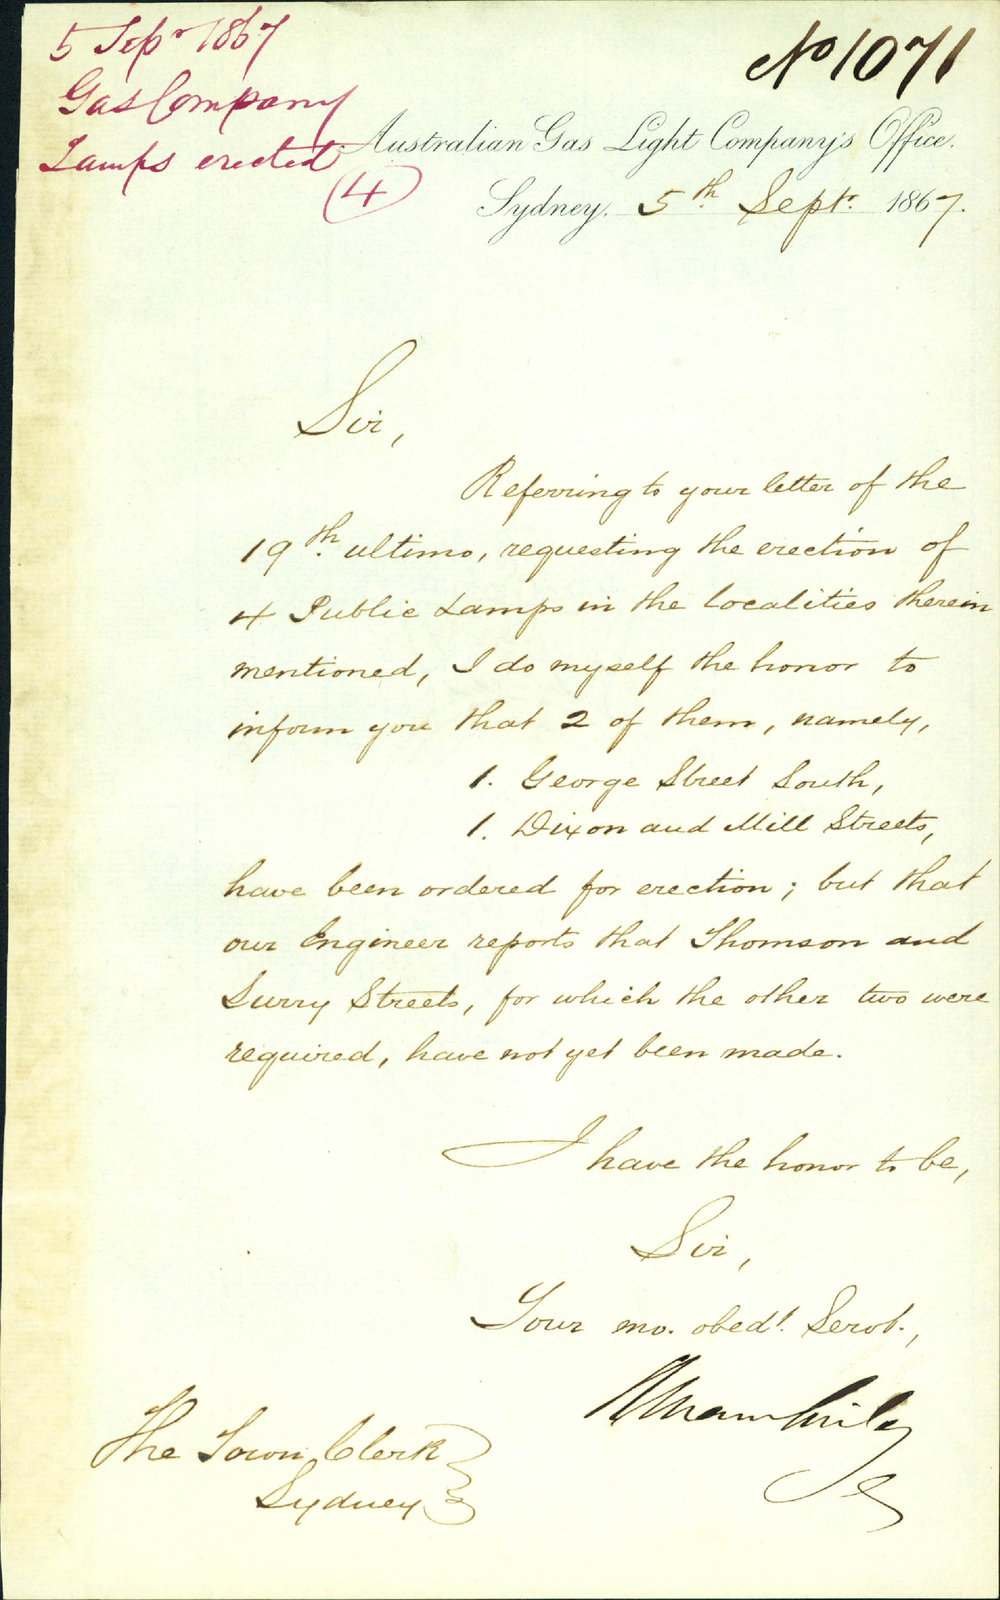 5 Sepr 1867
Gas Company
Lamps erected
(4)
No 1071
Australian Gas Light Company's Office.
Sydney. 5th Septr. 1867.
Sir,
Referring to your letter of the
19th. ultimo, requesting the erection of
4 Public Lamps in the localities therein
mentioned, I do myself the honor to
inform you that 2 of them, namely,
1. George Street South,
1. Dixon and Mill Streets,
have been ordered for erection; but that
our Engineer reports that Thomson and
Surry Streets, for which the other two were
required, have not yet been made.
I have the honor to be,
Sir,
Your mo. obedt. Servt.,
The Town Clerk
Sydney